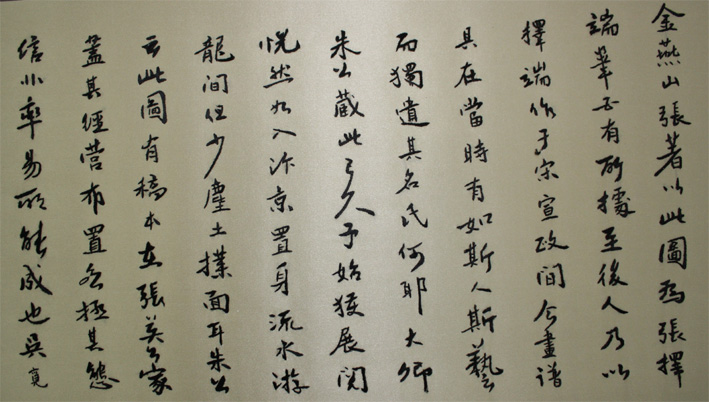 金燕山張著以此圖為張擇
端筆必有所據至後人乃以
擇端作于宗宣政間今畫譜
具在當時有如斯人斯藝
而獨遺其名氏何耶大卿
朱公蔵此已久予始獲展閱
恍然如入汴京置身流水游
龍間但少塵土撲面耳朱公
云此圖有稿本在張英公家
蓋其經營布置各極其態
信非率易所能成也吳寬